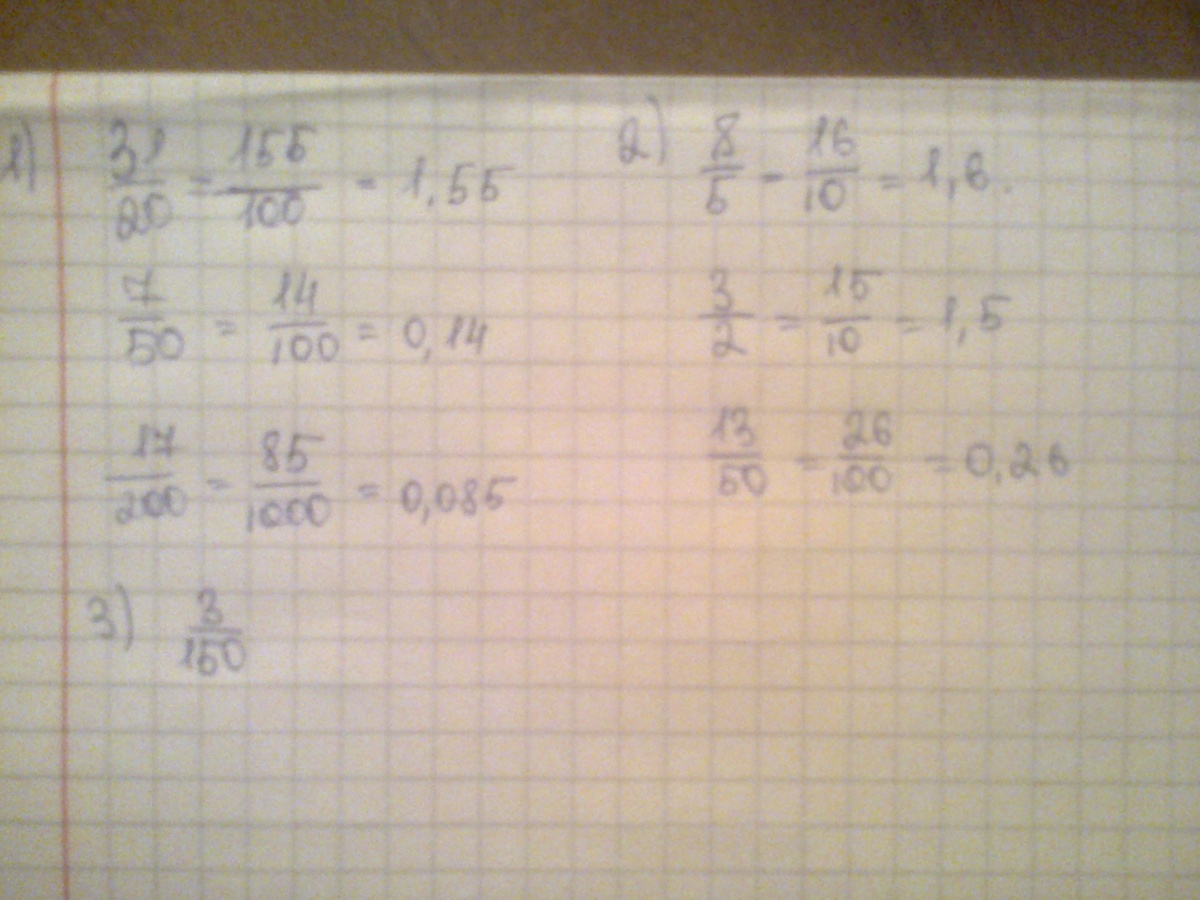 1) 31/20 = 155/100 = 1,55
7/50 = 14/100 = 0,14
17/200 = 85/1000 = 0,085
2) 8/5 = 16/10 = 1,6.
3/2 = 15/10 = 1,5
13/50 = 26/100 = 0,26
3) 3/150